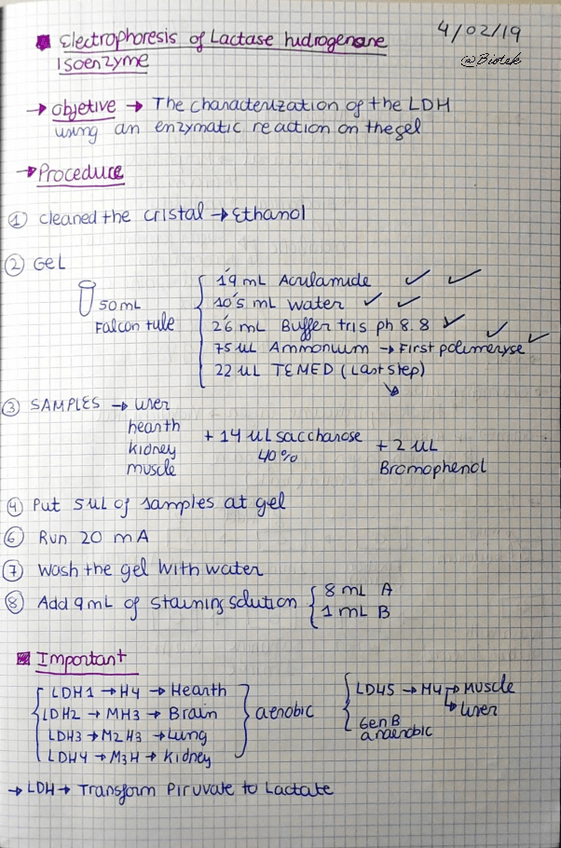 Electrophoresis of Lactase hidrogenase 4/02/19
Isoenzyme @Biotek
→ Objetive → The characterization of the LDH
using an enzymatic reaction on the gel
→ Procedure
① Cleaned the cristal → Ethanol
② Gel
50 mL
Falcon tule
1'9 mL Acrulamide ✓ ✓
10'5 mL Water ✓ ✓
2'6 mL Buffer tris ph 8.8 ✓ ✓
75 uL Ammonium → First polimeryse ✓
22 uL TEMED (Last step)
③ SAMPLES → liver
hearth
kidney
muscle
+ 14 uL saccharose
40%
+ 2 uL
Bromophenol
④ Put 5 uL of samples at gel
⑥ Run 20 mA
⑦ Wash the gel with water
⑧ Add 9 mL of staining solution { 8 mL A
1 mL B
Important
LDH1 → H4 → Hearth
LDH2 → MH3 → Brain
LDH3 → M2H3 → Lung
LDH4 → M3H → kidney
aerobic
LD45 → M4 → Muscle
↳ liver
Gen B
anaerobic
→ LDH → Transform Piruvate to Lactate